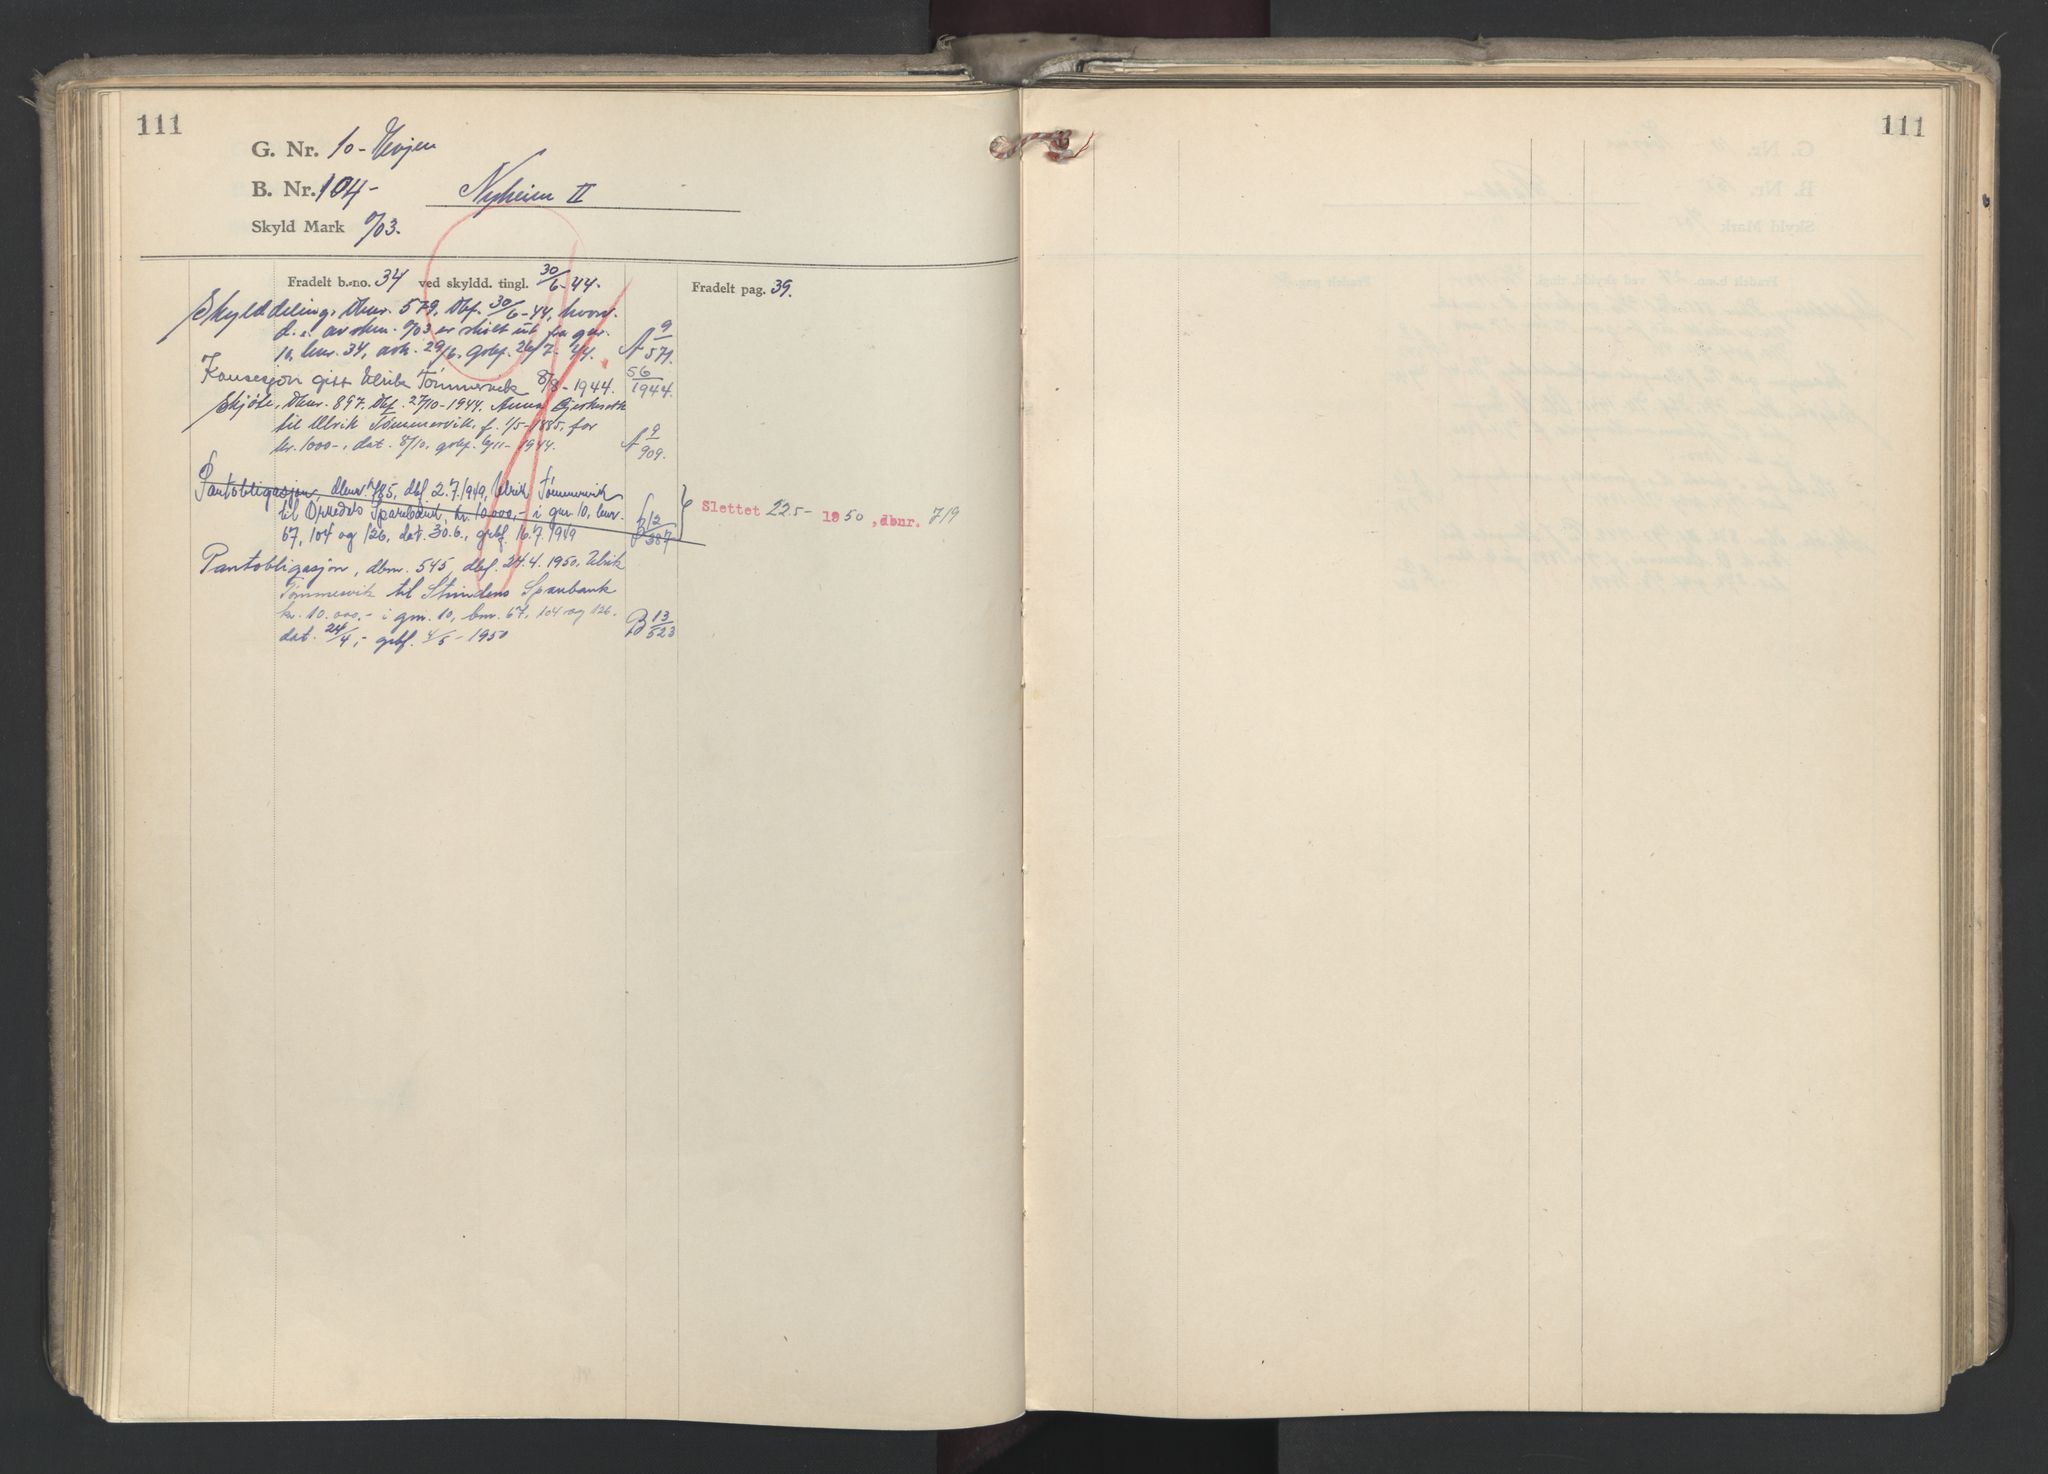 111
G. Nr. 10 - Evjen
B. Nr. 104 - Nyheim II
Skyld Mark 0/03.
Fradelt b.-no. 34 ved skyldd. tingl. 30/6-44. Fradelt pag. 39.
Skylddeling, dbnr. 579, dbf. 30/6-44, hvorv.
d. e. av skm. 0/03 er skilt ut fra gnr.
10, bnr. 34, avh. 29/6, grbf. 26/7-44. A 9/571.
Konsesjon gitt Ulrik Tømmervik 8/8-1944. 56/1944.
Skjøte, dbnr. 897, dbf. 27/10-1944. Anna
til Ulrik Tømmervik, f. 1/5-1885, for
kr. 1000-, dat. 8/10, grbf. 6/11-1944. A 9/909.
Pantobligasjon, dbnr. 785, dbf. 2.7.1949, Ulrik Tømmervik
til Orkedals Sparebank, kr. 10.000,- i gnr 10, bnr.
67, 104 og 126, dat. 30.6., grbf. 16.7.1949 B 12/387
Slettet 22.5- 1950, dbnr. 719
Pantobligasjon, dbnr. 545, dbf. 24.4.1950, Ulrik
Tømmervik til Strindens Sparebank
kr. 10.000,- i gnr. 10, bnr. 67, 104 og 126.
dat. 24/4,- grbf. 4/5-1950 B 13/523
111